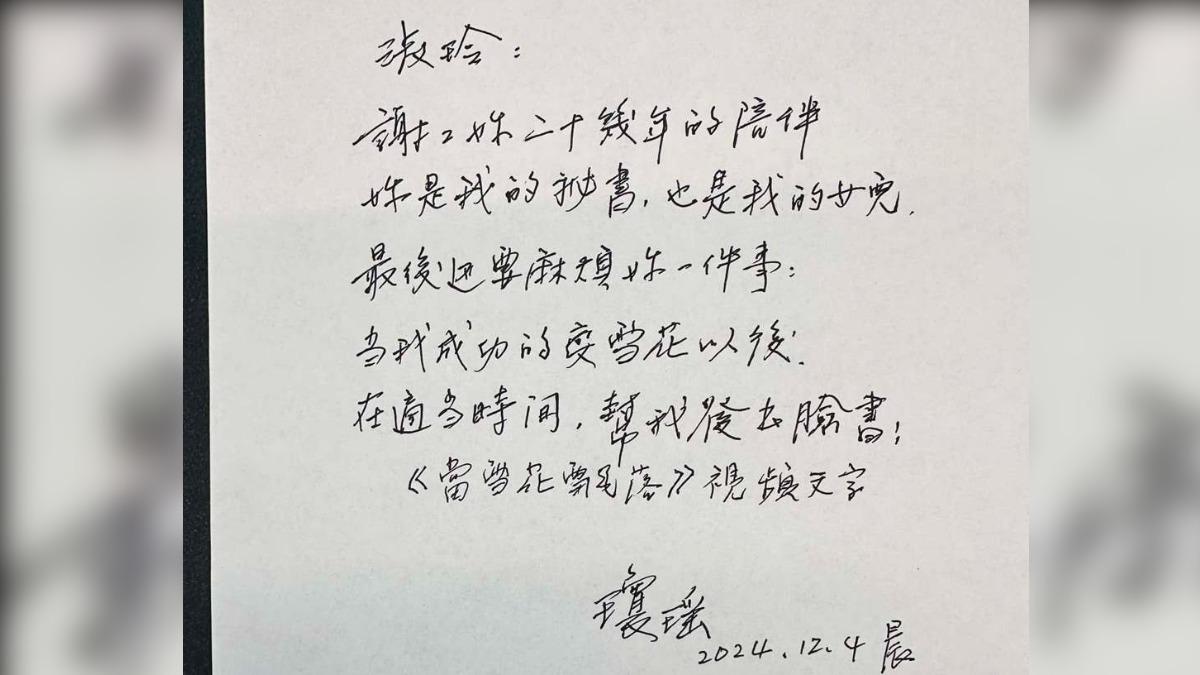 淑玲：
謝謝妳二十幾年的陪伴
妳是我的祕書，也是我的女兒.
最後还要麻煩妳一件事：
当我成功的变雪花以後.
在適当時间，幫我發去臉書！
《當雪花飄落》視頻文字
瓊瑤
2024.12.4 晨